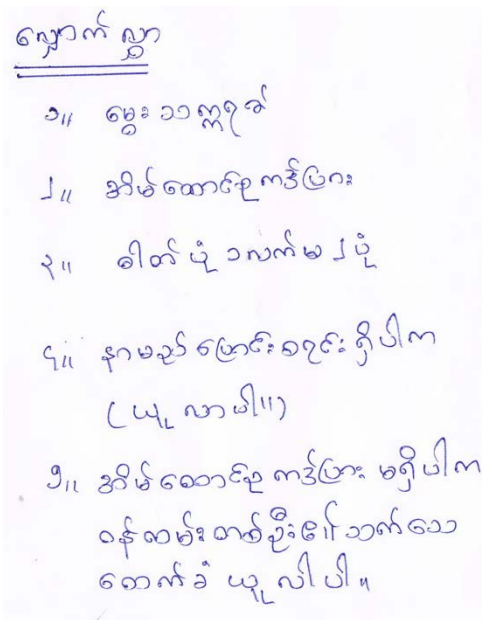 လျှောက်လွှာ
၁။ မွေးသက္ကရာဇ်
၂။ အိမ်ထောင်စု ကဒ်ပြား
၃။ ဓါတ်ပုံ ၁လက်မ ၂ပုံ
၄။ နာမည်ပြောင်းစရင်းရှိပါက
(ယူလာပါ။)
၅။ အိမ်ထောင်စု ကဒ်ပြား မရှိပါက
ဝန်ထမ်းတစ်ဦး၏ သက်သေ
ထောက်ခံ ယူလါပါ။